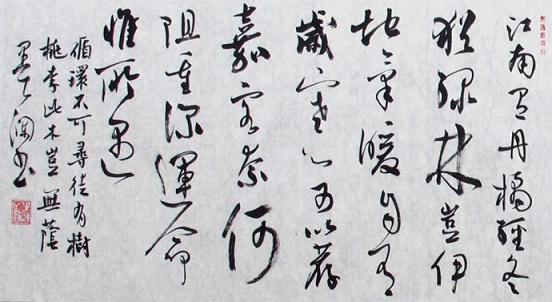 江南有丹橘經冬
猶綠林豈伊
地氣暖自有
歲寒心可以荐
嘉客奈何
阻重深運命
惟所遇
循環不可尋徒有樹
桃李此木豈無蔭
書